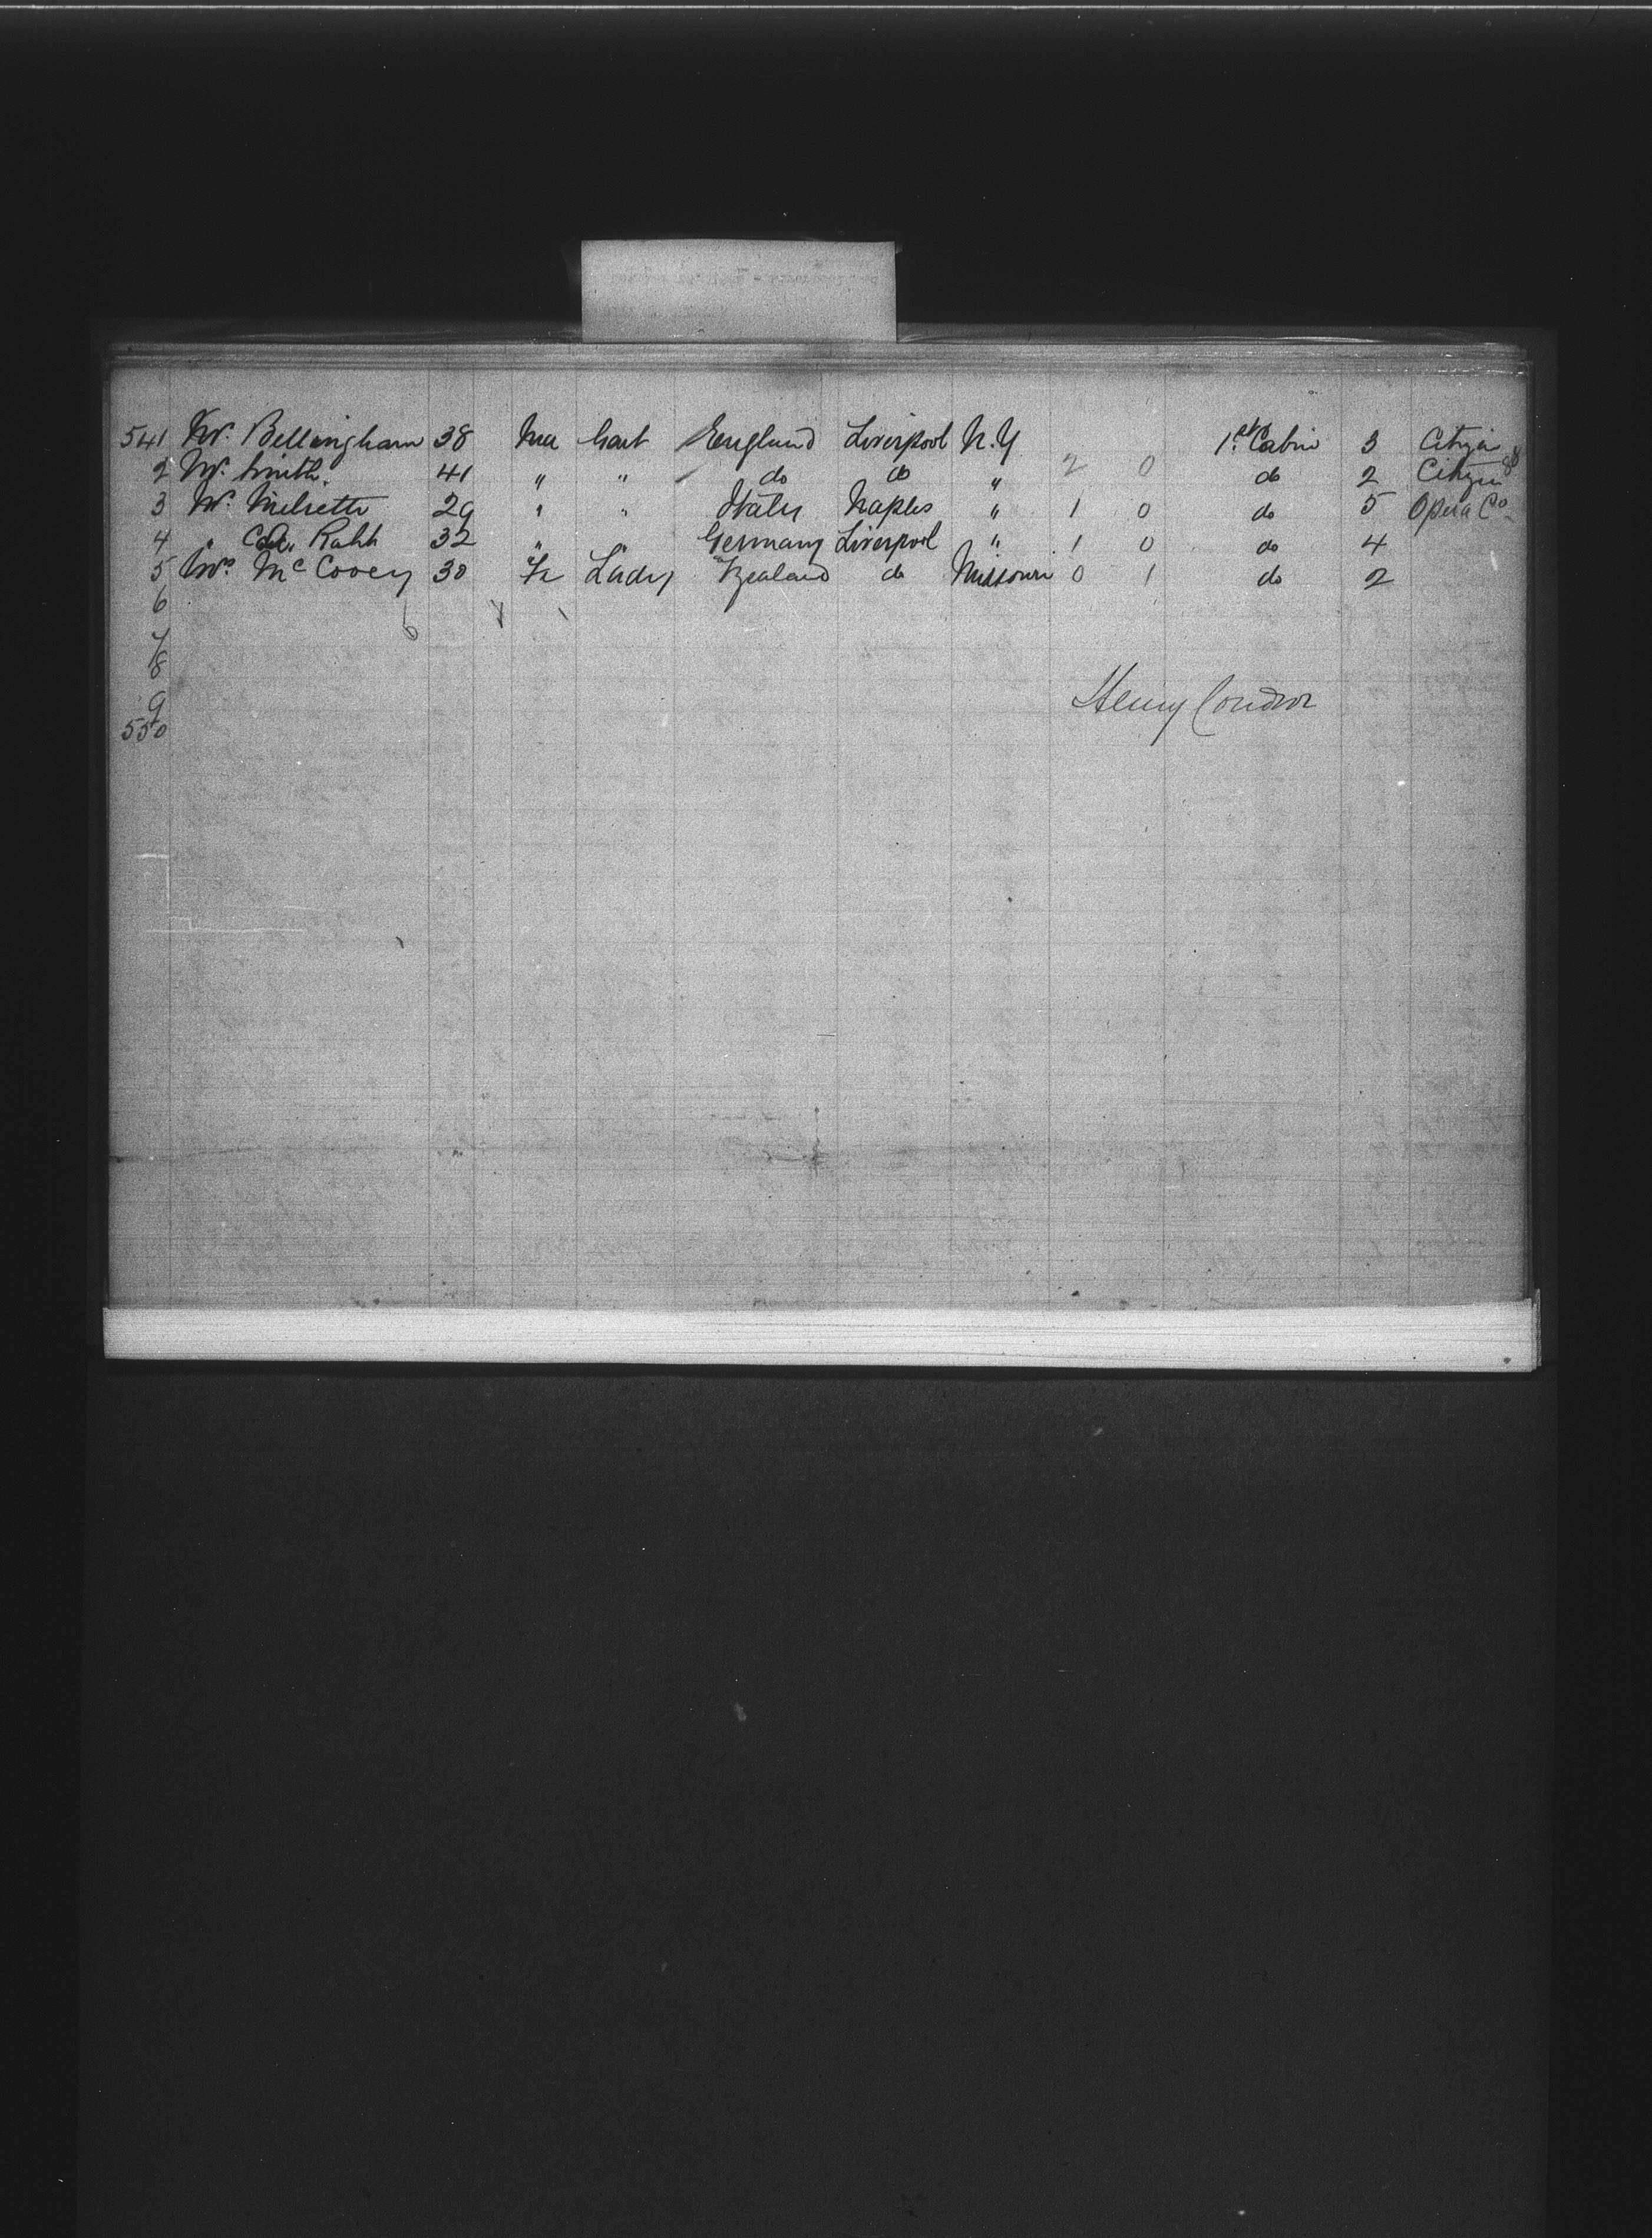 541 Mr. Bellingham 38 Ma Gent England Liverpool N.Y 1st Cabin 3 Citizen
2 Mr. Smith. 41 " " do do " 2 0 do 2 Citizen
3 Mr. 29 " " Italy Naples " 1 0 do 5 Opera Co
4 " 32 " " Germany Liverpool " 1 0 do 4
5 Mrs. McCovey 30 Fe Lady do Missouri 0 1 do 2
6
7
8
9
550
Henry Condron